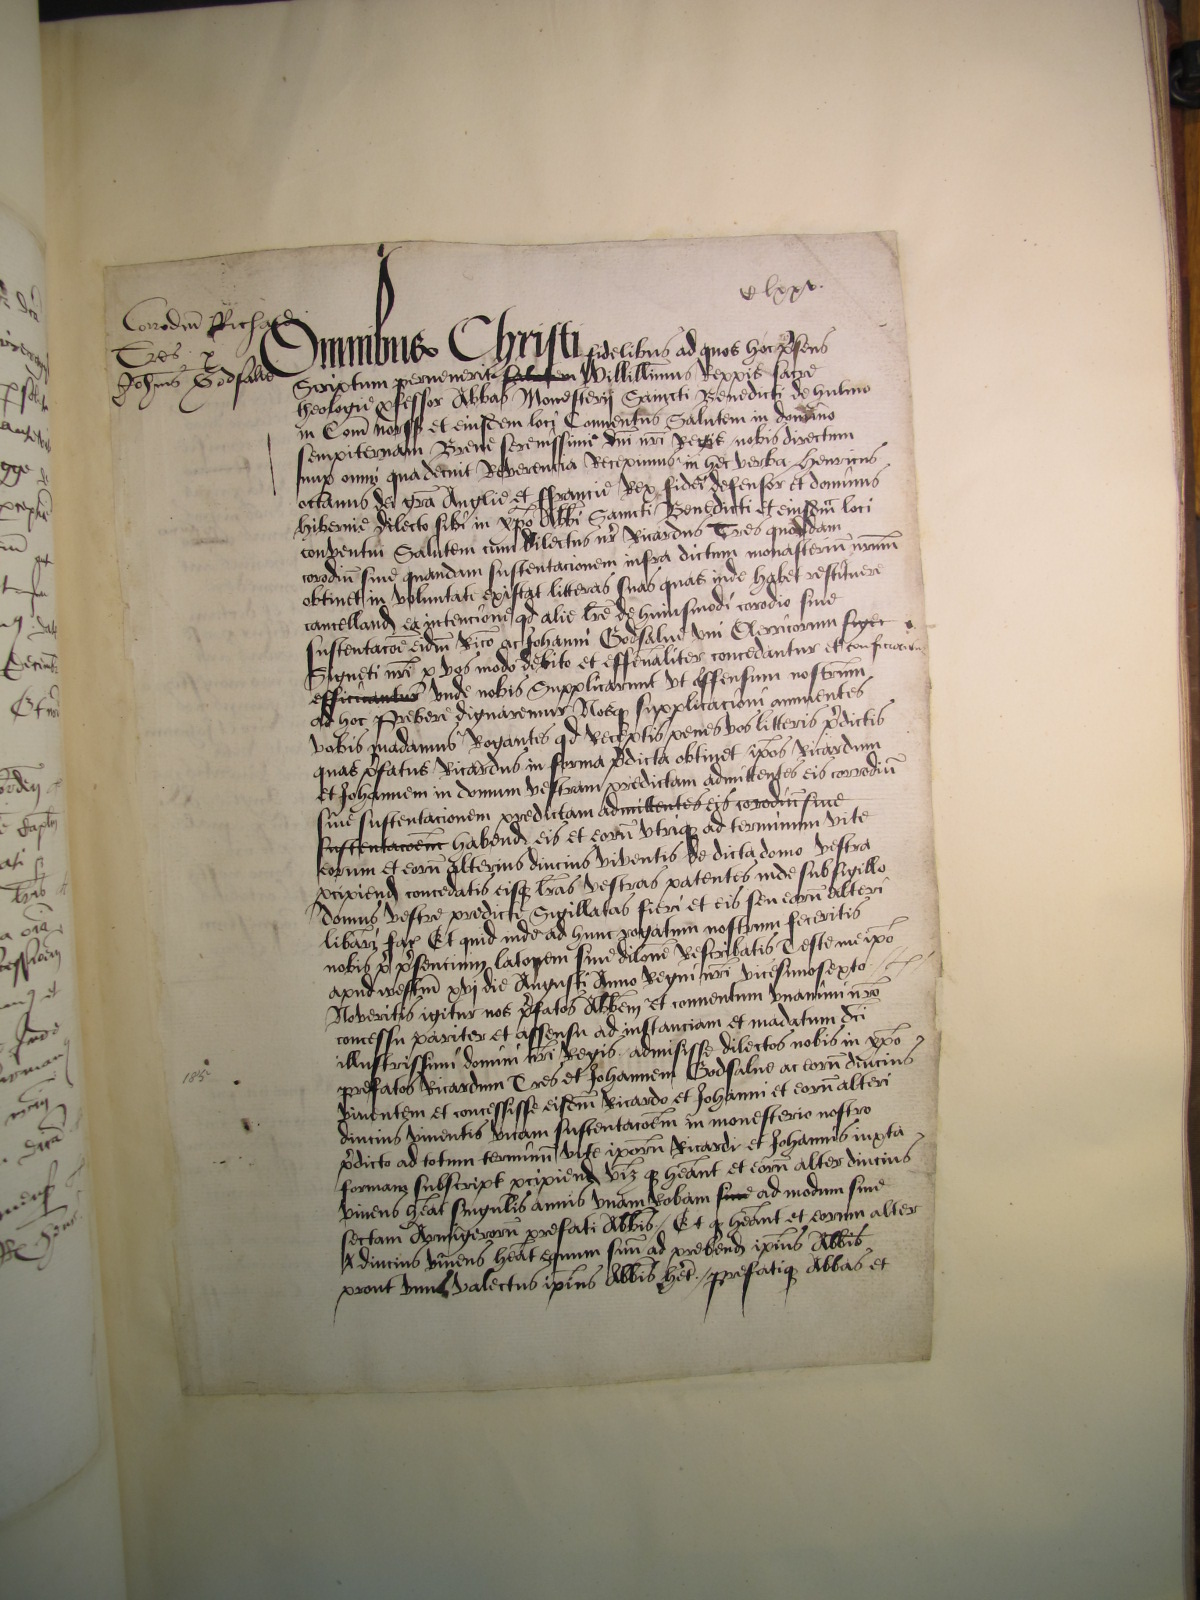 Corrodiū Richard
Tres &
Johīs Godsalve
lxxv.
Omnibus Christi fidelibus ad quos hoc p̄sens
Scriptum pervenerit Salutem Willillimus Reppis sacre
theologie p̱fessor Abbas Monesterij Sancti Benedicti de Hulmo
in Com̄ Norff et eiusdem loci Conventus Salutem in domino
sempiternam Breve serenissimi dn̄i nr̄i Regis nobis directum
nup omni qua decuit Reverencia Recepimus in hec verba Henricus
octavus dei gr̄a Anglie et ffrancie Rex fidei defensor et dominus
Hibernie dilecto sibi in xp̄o Abbī Sancti Benedicti et eiusdem loci
conventui Salutem cum dilectus nr̄ Ricardus Tres quoddam
corodiū sive quandam sustentacionem infra dictum monasteriū vrm̄
obtinet in voluntati existat litteras suas quas inde habet restituere
cancelland ea intencione qd alie lr̄e de huiusmodi corodio sive
sustentacōe eidm̄ Rico ac Johanni Godsalve uni Clericorum
Signeti nr̄i p vos modo debito et essenc̄aliter concedantur et conficiantur
efficiantur unde nobis Supplicarunt ut assensum nostrum
ad hoc Prebere dignaremur Nosq supplicacioni annuentes
vobis madamus Rogantes qd Receptis penes vos litteris p̄dictis
quas p̄fatus Ricardus in forma p̄dicta obtinet ip̄os Ricardum
et Johannem in domum vestram predictam admittentes eis corrodiū
sive sustentacionem predictam admittentes eis corodiū sive
sustentacōem habend eis et eorū utriq ad terminum vite
eorum et eorū alterius diucius viventis de dicta domo vestra
p̱cipiend concedatis eisq lr̄as vestras patentes inde sub sigillo
domus vestre predicti Sigillatas fieri et eis seu eorū alteri
libārī fac Et quid inde ad hunc rogatum nostrum feceritis
nobis p̱ p̄sencium latorem sine dilōne Rescribatis Teste me ip̄o
apud westm̄ xvj die Augusti Anno Regni nr̄i vicesimosexto
Noveritis igitur nos p̄fatos Abb̄em et conventum unanimi nr̄o
concessu pariter et assensu ad instanciam et madatum dc̄i
illustrissimi domini nr̄i Regis admisisse dilectos nobis in xp̄o
prefatos Ricardum Tres et Johannem Godsalve ac eorū diucius
viventem et concessisse eisdm̄ Ricardo et Johanni et eorū alteri
diucius viventis unam sustentacōem in monesterio nostro
p̄dicto ad totum terminū vite ip̄orū Ricardi et Johannis iuxta
formam subscript p̱cipiend viz q heānt et eorū alter diucius
vivens heāt singulis annis unam Robam sive ad modum sive
sectam Armigerorū prefati Abbīs / Et q heānt et eorum alter
diucius vivens heāt equum suū ad prebend ip̄ius Abbīs
prout unus valectus ip̄ius Abbīs het̄ / prefatiq Abbas et
185